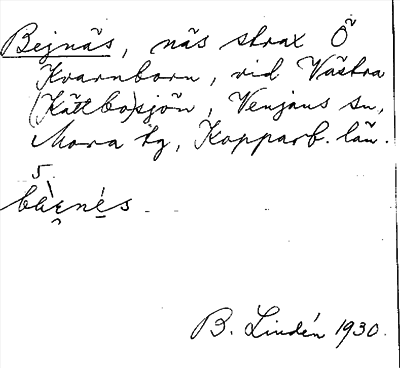 Bejnäs, näs strax Ö
Kvarnborn, vid Västra
(Kättbo)sjön, Venjans sn,
Mora tg, Kopparb. län.
5
B. Lindén 1930.